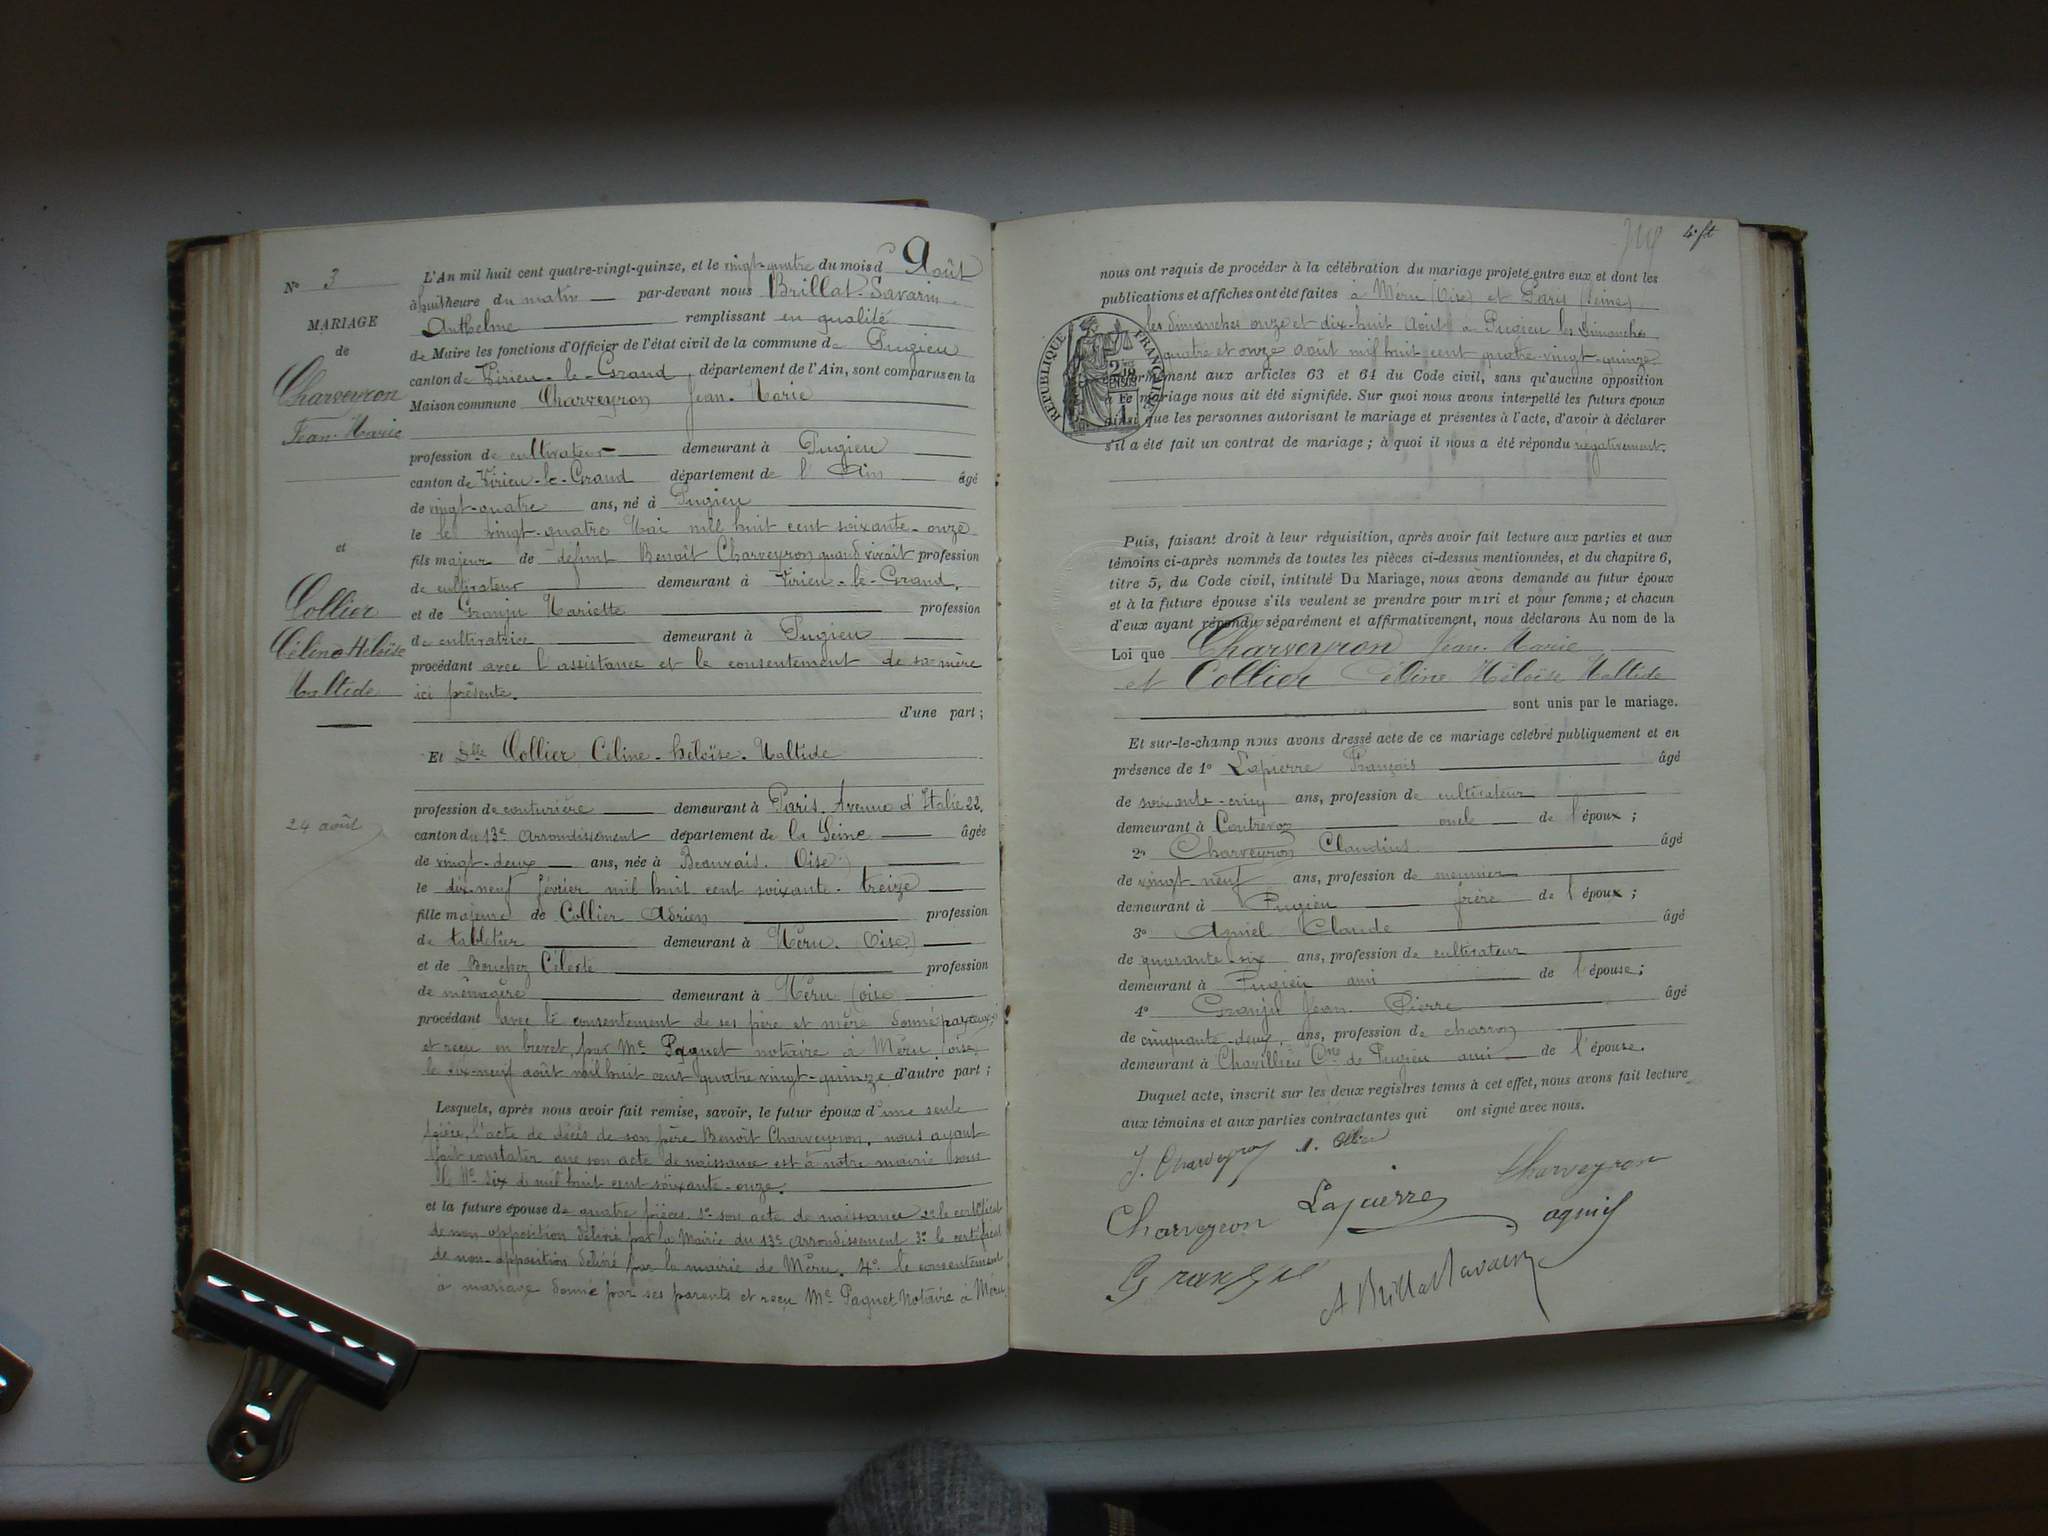 N° 3
MARIAGE
de
Charveyron
Jean-Marie
et
Collier
Céline Héloïse
Maltide
24 août
L'An mil huit cent quatre-vingt-quinze, et le vingt-quatre du mois d' Août
à huit heure du matin par-devant nous Brillat-Savarin
Anthelme remplissant en qualité
de Maire les fonctions d'Officier de l'état civil de la commune de Pugieu
canton de Virieu-le-Grand, département de l'Ain, sont comparus en la
Maison commune Charveyron Jean-Marie
profession de cultivateur demeurant à Pugieu
canton de Virieu-le-Grand département de l'Ain âgé
de vingt-quatre ans, né à Pugieu
le le vingt-quatre Mai mil huit cent soixante-onze
fils majeur de défunt Benoît Charveyron quand vivait profession
de cultivateur demeurant à Virieu-le-Grand,
et de Granju Mariette profession
de cultivatrice demeurant à Pugieu
procédant avec l'assistance et le consentement de sa mère
ici présente.
d'une part;
Et Dlle Collier Céline-Héloïse-Maltide
profession de couturière demeurant à Paris. Avenue d'Italie 22.
canton du 13e arrondissement département de la Seine âgée
de vingt-deux ans, née à Beauvais. (Oise)
le dix-neuf février mil huit cent soixante-treize
fille majeure de Collier Adrien profession
de tabletier demeurant à Méru. (Oise)
et de Bouchez Céleste profession
de ménagère demeurant à Méru (oise
procédant avec le consentement de ses père et mère donné par eux
et reçu en brevet, par Me Paquet notaire à Méru (oise
le dix-neuf août mil huit cent quatre vingt-quinze d'autre part;
Lesquels, après nous avoir fait remise, savoir, le futur époux d'une seule
pièce, l'acte de décès de son père Benoît Charveyron, nous ayant
fait constater que son acte de naissance est à notre mairie sous
le No six de mil huit cent soixante-onze.
et la future épouse de quatre pièces. 1° son acte de naissance 2° le certificat
de non opposition délivré par la Mairie du 13e arrondissement 3° le certificat
de non-opposition délivré par la mairie de Méru. 4° le consentement
à mariage donné par ses parents et reçu Me Paquet Notaire à Méru.
4. ft
nous ont requis de procéder à la célébration du mariage projeté entre eux et dont les
publications et affiches ont été faites à Méru (Oise) et Paris (Seine)
les dimanches onze et dix-huit Août à Pugieu les Dimanches
quatre et onze août mil huit cent quatre-vingt-quinze
conformément aux articles 63 et 64 du Code civil, sans qu'aucune opposition
à ce mariage nous ait été signifiée. Sur quoi nous avons interpellé les futurs époux
ainsi que les personnes autorisant le mariage et présentes à l'acte, d'avoir à déclarer
s'il a été fait un contrat de mariage; à quoi il nous a été répondu négativement.
RÉPUBLIQUE FRANÇAISE
Puis, faisant droit à leur réquisition, après avoir fait lecture aux parties et aux
témoins ci-après nommés de toutes les pièces ci-dessus mentionnées, et du chapitre 6,
titre 5, du Code civil, intitulé Du Mariage, nous avons demandé au futur époux
et à la future épouse s'ils veulent se prendre pour mari et pour femme; et chacun
d'eux ayant répondu séparément et affirmativement, nous déclarons Au nom de la
Loi que Charveyron Jean-Marie
et Collier Céline Héloïse Maltide
sont unis par le mariage.
Et sur-le-champ nous avons dressé acte de ce mariage célébré publiquement et en
présence de 1° Lapierre François âgé
de soixante-cinq ans, profession de cultivateur
demeurant à Contrevoz oncle de l'époux;
2° Charveyron Claudius âgé
de vingt neuf ans, profession de meunier
demeurant à Pugieu frère de l'époux;
3° Agniel Claude âgé
de quarante-six ans, profession de cultivateur
demeurant à Pugieu ami de l'épouse;
4° Granju Jean-Pierre âgé
de cinquante-deux, ans, profession de charron
demeurant à Chavillieu Cne de Pugieu ami de l'épouse.
Duquel acte, inscrit sur les deux registres tenus à cet effet, nous avons fait lecture
aux témoins et aux parties contractantes qui ont signé avec nous.
J. Charveyron
Charveyron
Charveyron Lapierre
Granju A Brillat Savarin